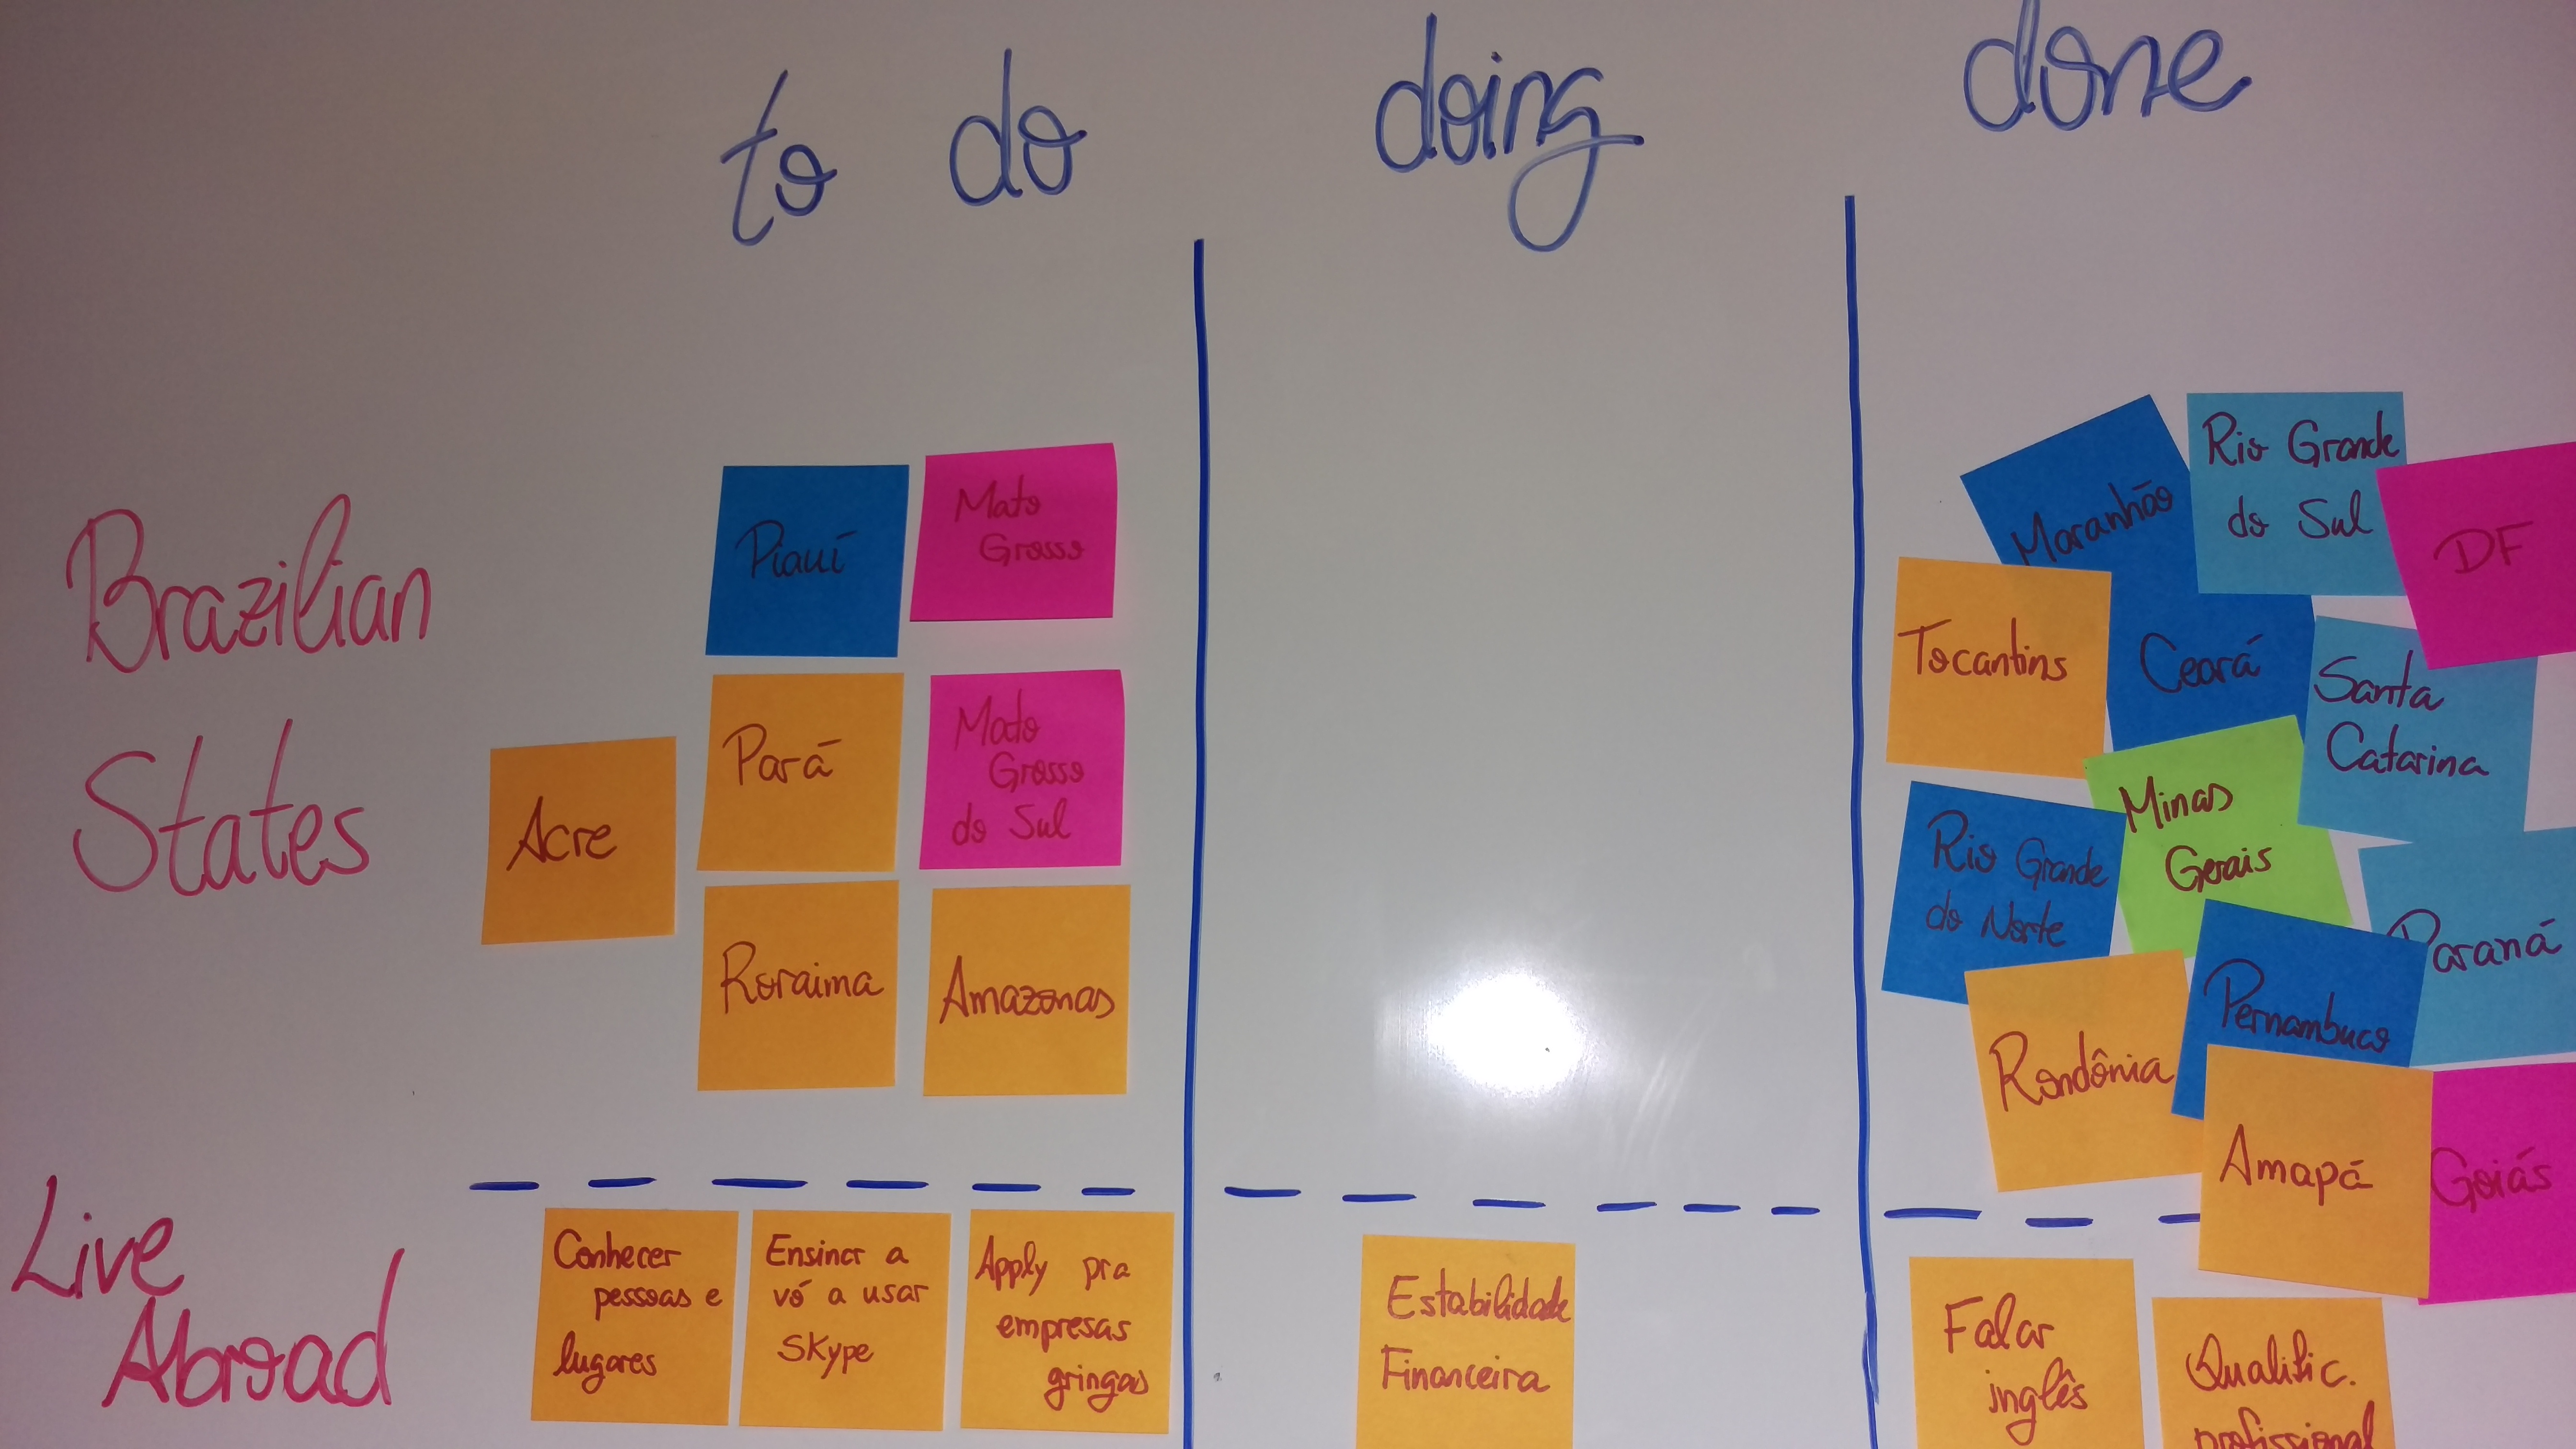 to do
doing
done
Brazilian
States
Piauí
Mato
Grosso
Acre
Pará
Mato
Grosso
do Sul
Roraima
Amazonas
Maranhão
Rio Grande
do Sul
DF
Tocantins
Ceará
Santa
Catarina
Minas
Gerais
Rio Grande
do Norte
Paraná
Pernambuco
Rondônia
Amapá
Goiás
Live
Abroad
Conhecer
pessoas e
lugares
Ensinar a
vó a usar
Skype
Apply pra
empresas
gringas
Estabilidade
Financeira
Falar
inglês
Qualific.
profissional